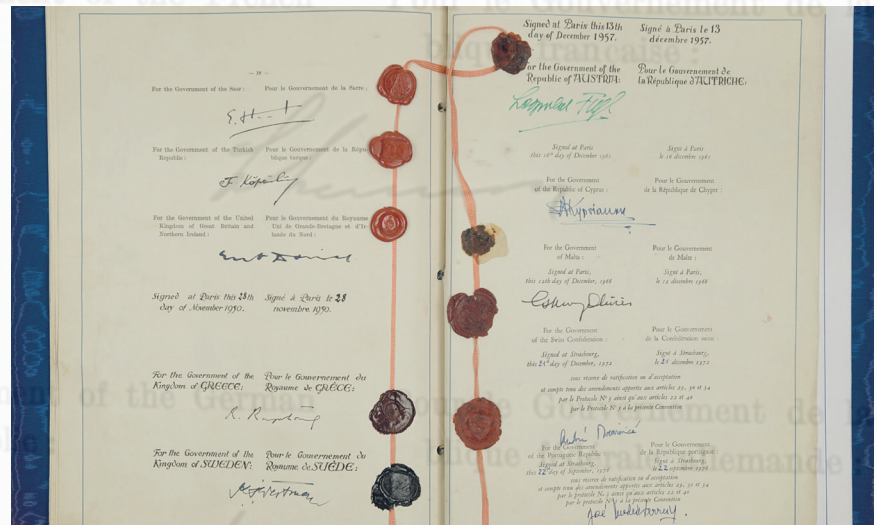 — 18 —
For the Government of the Saar :
Pour le Gouvernement de la Sarre :
For the Government of the Turkish
Republic :
Pour le Gouvernement de la Répu-
blique turque :
For the Government of the United
Kingdom of Great Britain and
Northern Ireland :
Pour le Gouvernement du Royaume
Uni de Grande-Bretagne et d'Ir-
lande du Nord :
Signed at Paris this 28th
day of November 1950.
Signé à Paris le 28
novembre 1950.
For the Government of the
Kingdom of GREECE:
Pour le Gouvernement du
Royaume de GRÈCE:
For the Government of the
Kingdom of SWEDEN:
Pour le Gouvernement du
Royaume de SUÈDE:
Signed at Paris this 13th
day of December 1957.
Signé à Paris le 13
décembre 1957.
For the Government of the
Republic of AUSTRIA:
Pour le Gouvernement de
la République d'AUTRICHE:
Leopold Figl
Signed at Paris
this 16th day of December 1961
Signé à Paris
le 16 décembre 1961
For the Government
of the Republic of Cyprus :
Pour le Gouvernement
de la République de Chypre :
For the Government
of Malta :
Pour le Gouvernement
de Malte :
Signed at Paris,
this 12th day of December, 1966
Signé à Paris,
le 12 décembre 1966
For the Government
of the Swiss Confederation :
Pour le Gouvernement
de la Confédération suisse :
Signed at Strasbourg,
this 21st day of December, 1972
Signé à Strasbourg,
le 21 décembre 1972
sous réserve de ratification ou d'acceptation
et compte tenu des amendements apportés aux articles 29, 30 et 34
par le Protocole N° 3 ainsi qu'aux articles 22 et 40
par le Protocole N° 5 à la présente Convention
For the Government
of the Portuguese Republic
Pour le Gouvernement
de la République portugaise :
Signed at Strasbourg,
this 22nd day of September, 1976
Signé à Strasbourg,
le 22 septembre 1976
sous réserve de ratification ou d'acceptation
et compte tenu des amendements apportés aux articles 29, 30 et 34
par le Protocole N° 3 ainsi qu'aux articles 22 et 40
par le Protocole N° 5 à la présente Convention